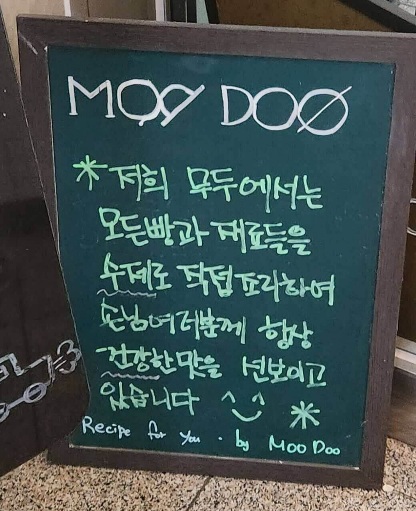 MOO DOO
* 저희 모두에서는
모든빵과 재료들을
수제로 직접 조리하여
손님여러분께 항상
건강한맛을 선보이고
있습니다 ^‿^ *
Recipe for you . by MOO DOO